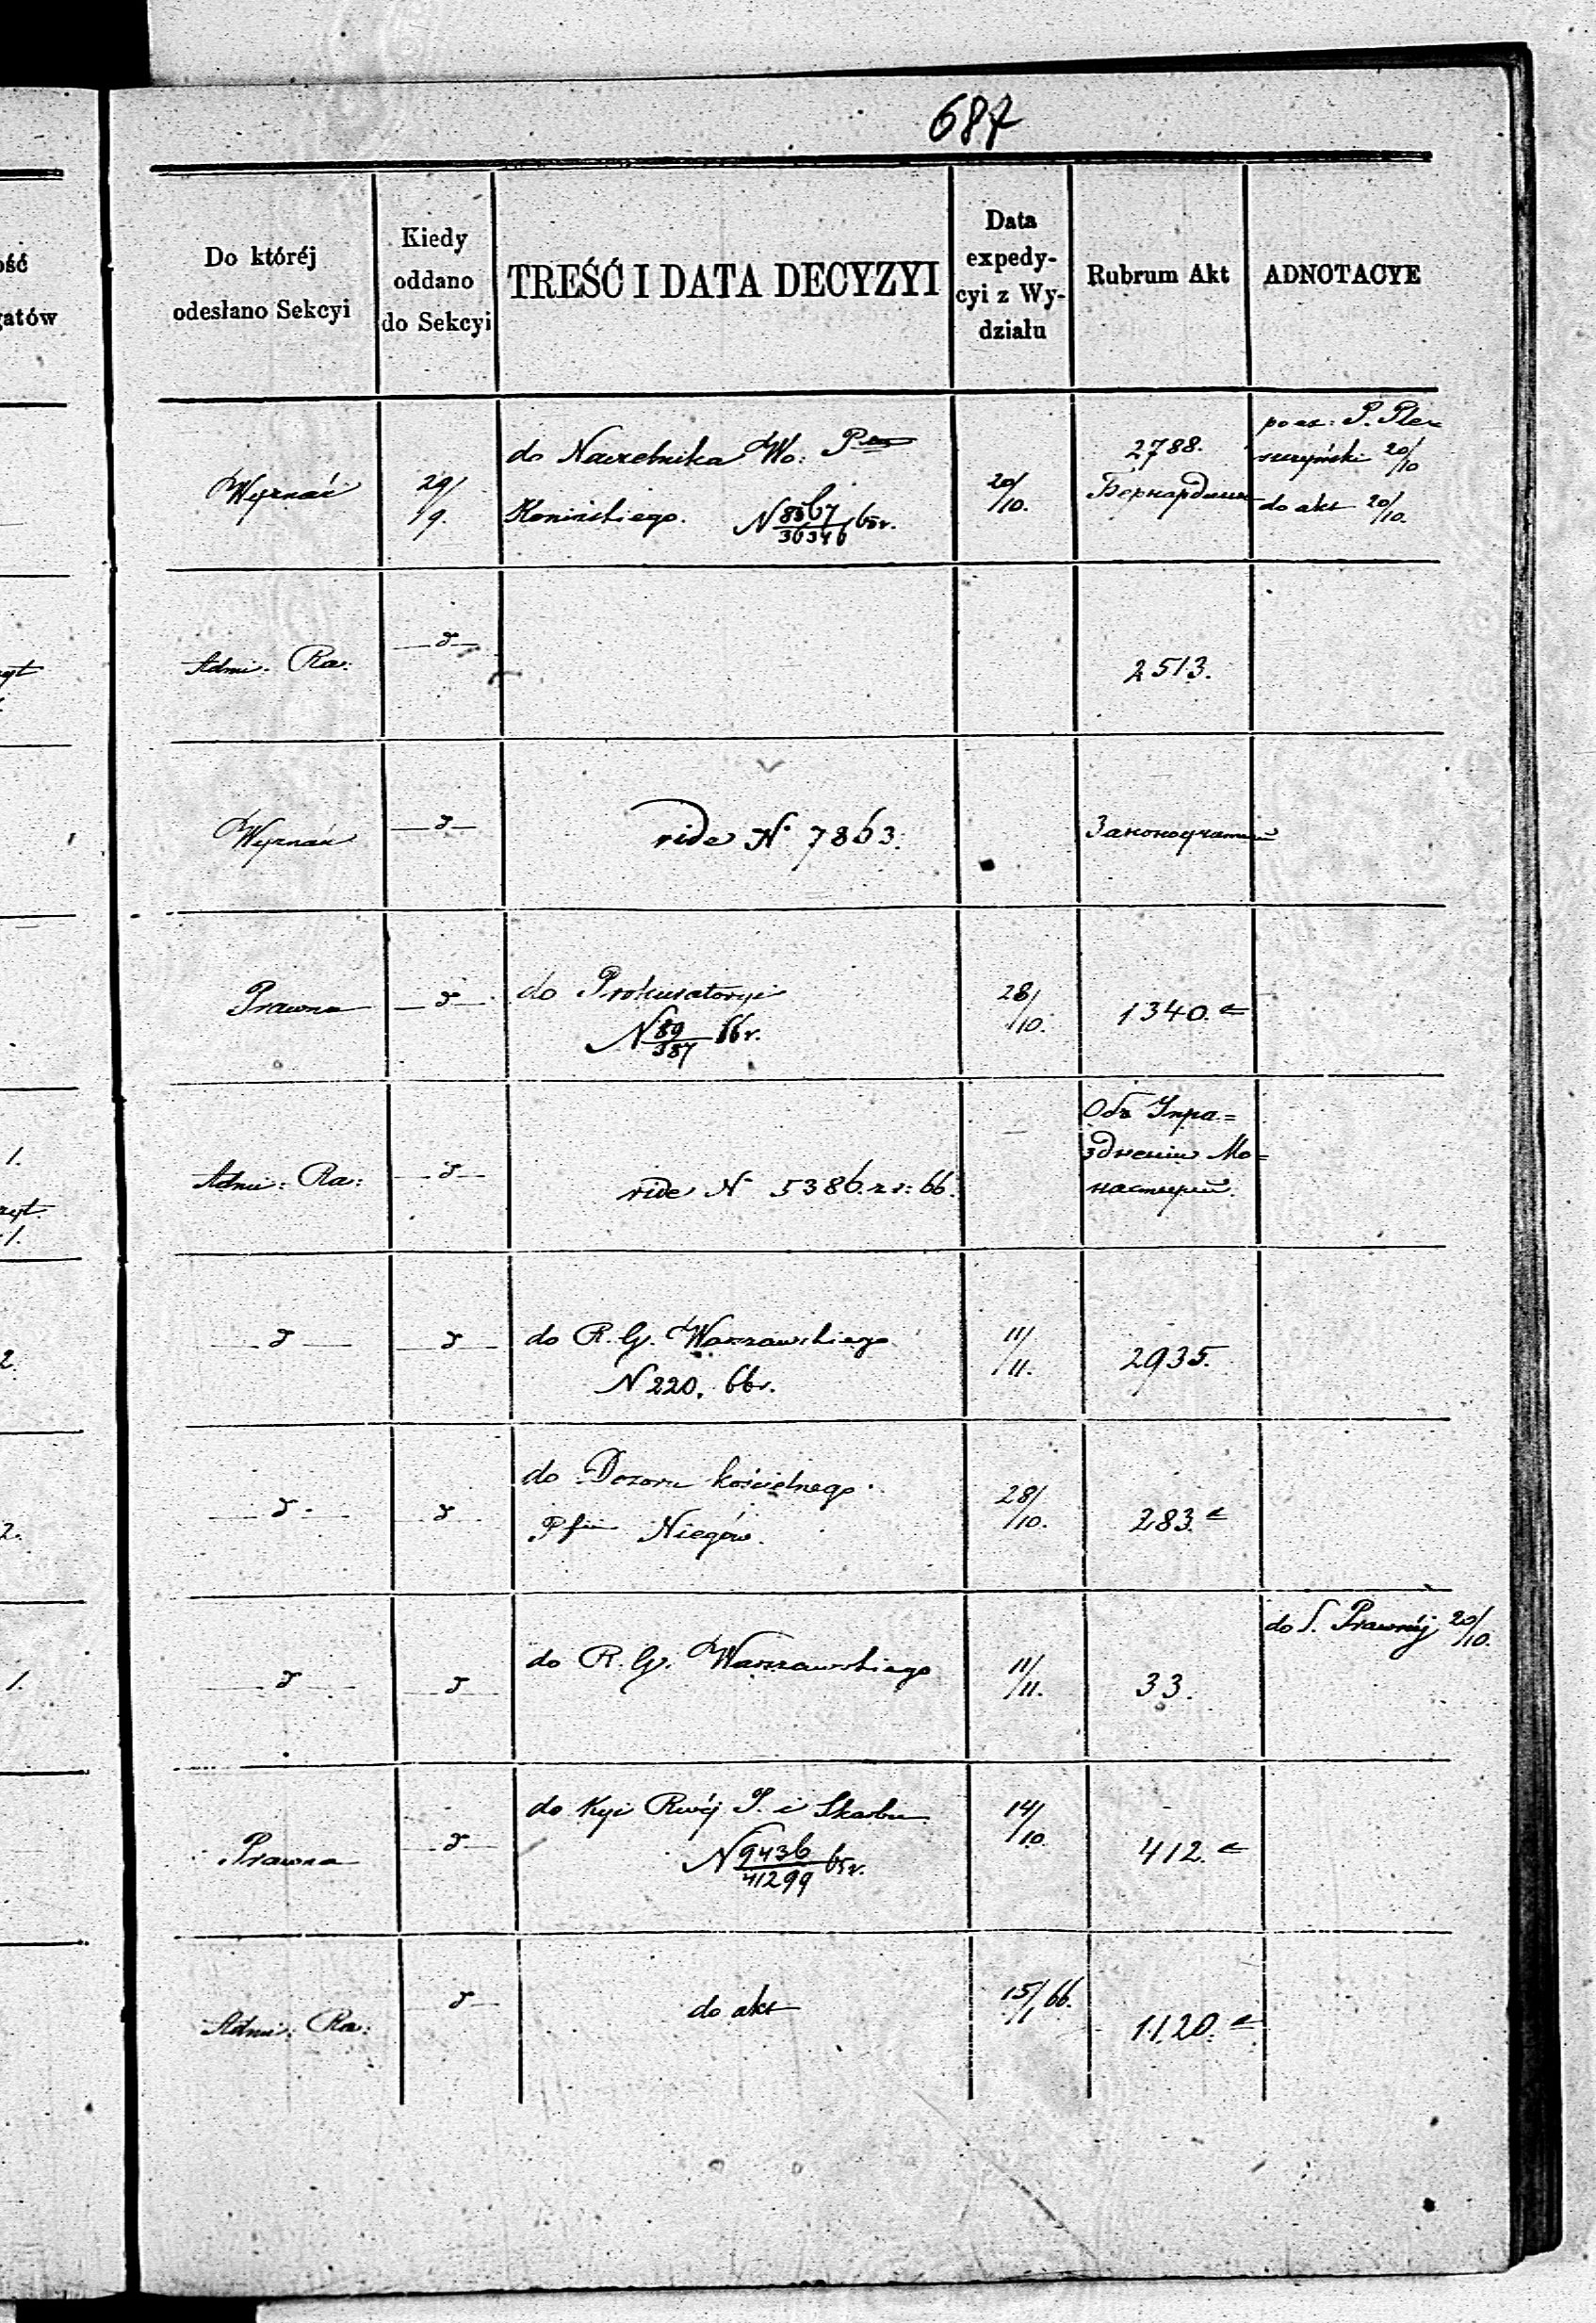 687
Do któréj
odesłano Sekcyi
Kiedy
oddano
do Sekcyi
TREŚĆ I DATA DECYZYI
Data
expedy-
cyi z Wy-
działu
Rubrum Akt
ADNOTACYE
Wyznań
29/9.
do Naczelnika Wo:
Konińskiego. N 8567/36346 65 r.
20/10.
2788.
20/10
do akt 20/10.
Admi. Ra:
2513.
Wyznań
vide N. 7863.
Prawna
do Prokuratoryi
N 89/387 66 r.
28/10.
1340.
Admi: Ra:
vide N 5386. z r: 66.
Объ Упра=
здненіи Мо=
настырей.
do R. G. Warszawskiego
N 220. 66 r.
11/11.
2935.
do Dozoru kościelnego
Pfii Niegów.
28/10.
283.
do R. G. Warszawskiego
11/11.
33.
do S. Prawnéj 20/10.
Prawna
do Kyi Rwéj P. i Skarbu
N 9436/41299 65 r.
14/10
412.
Admi: Ra:
do akt
15/1 66.
1120.